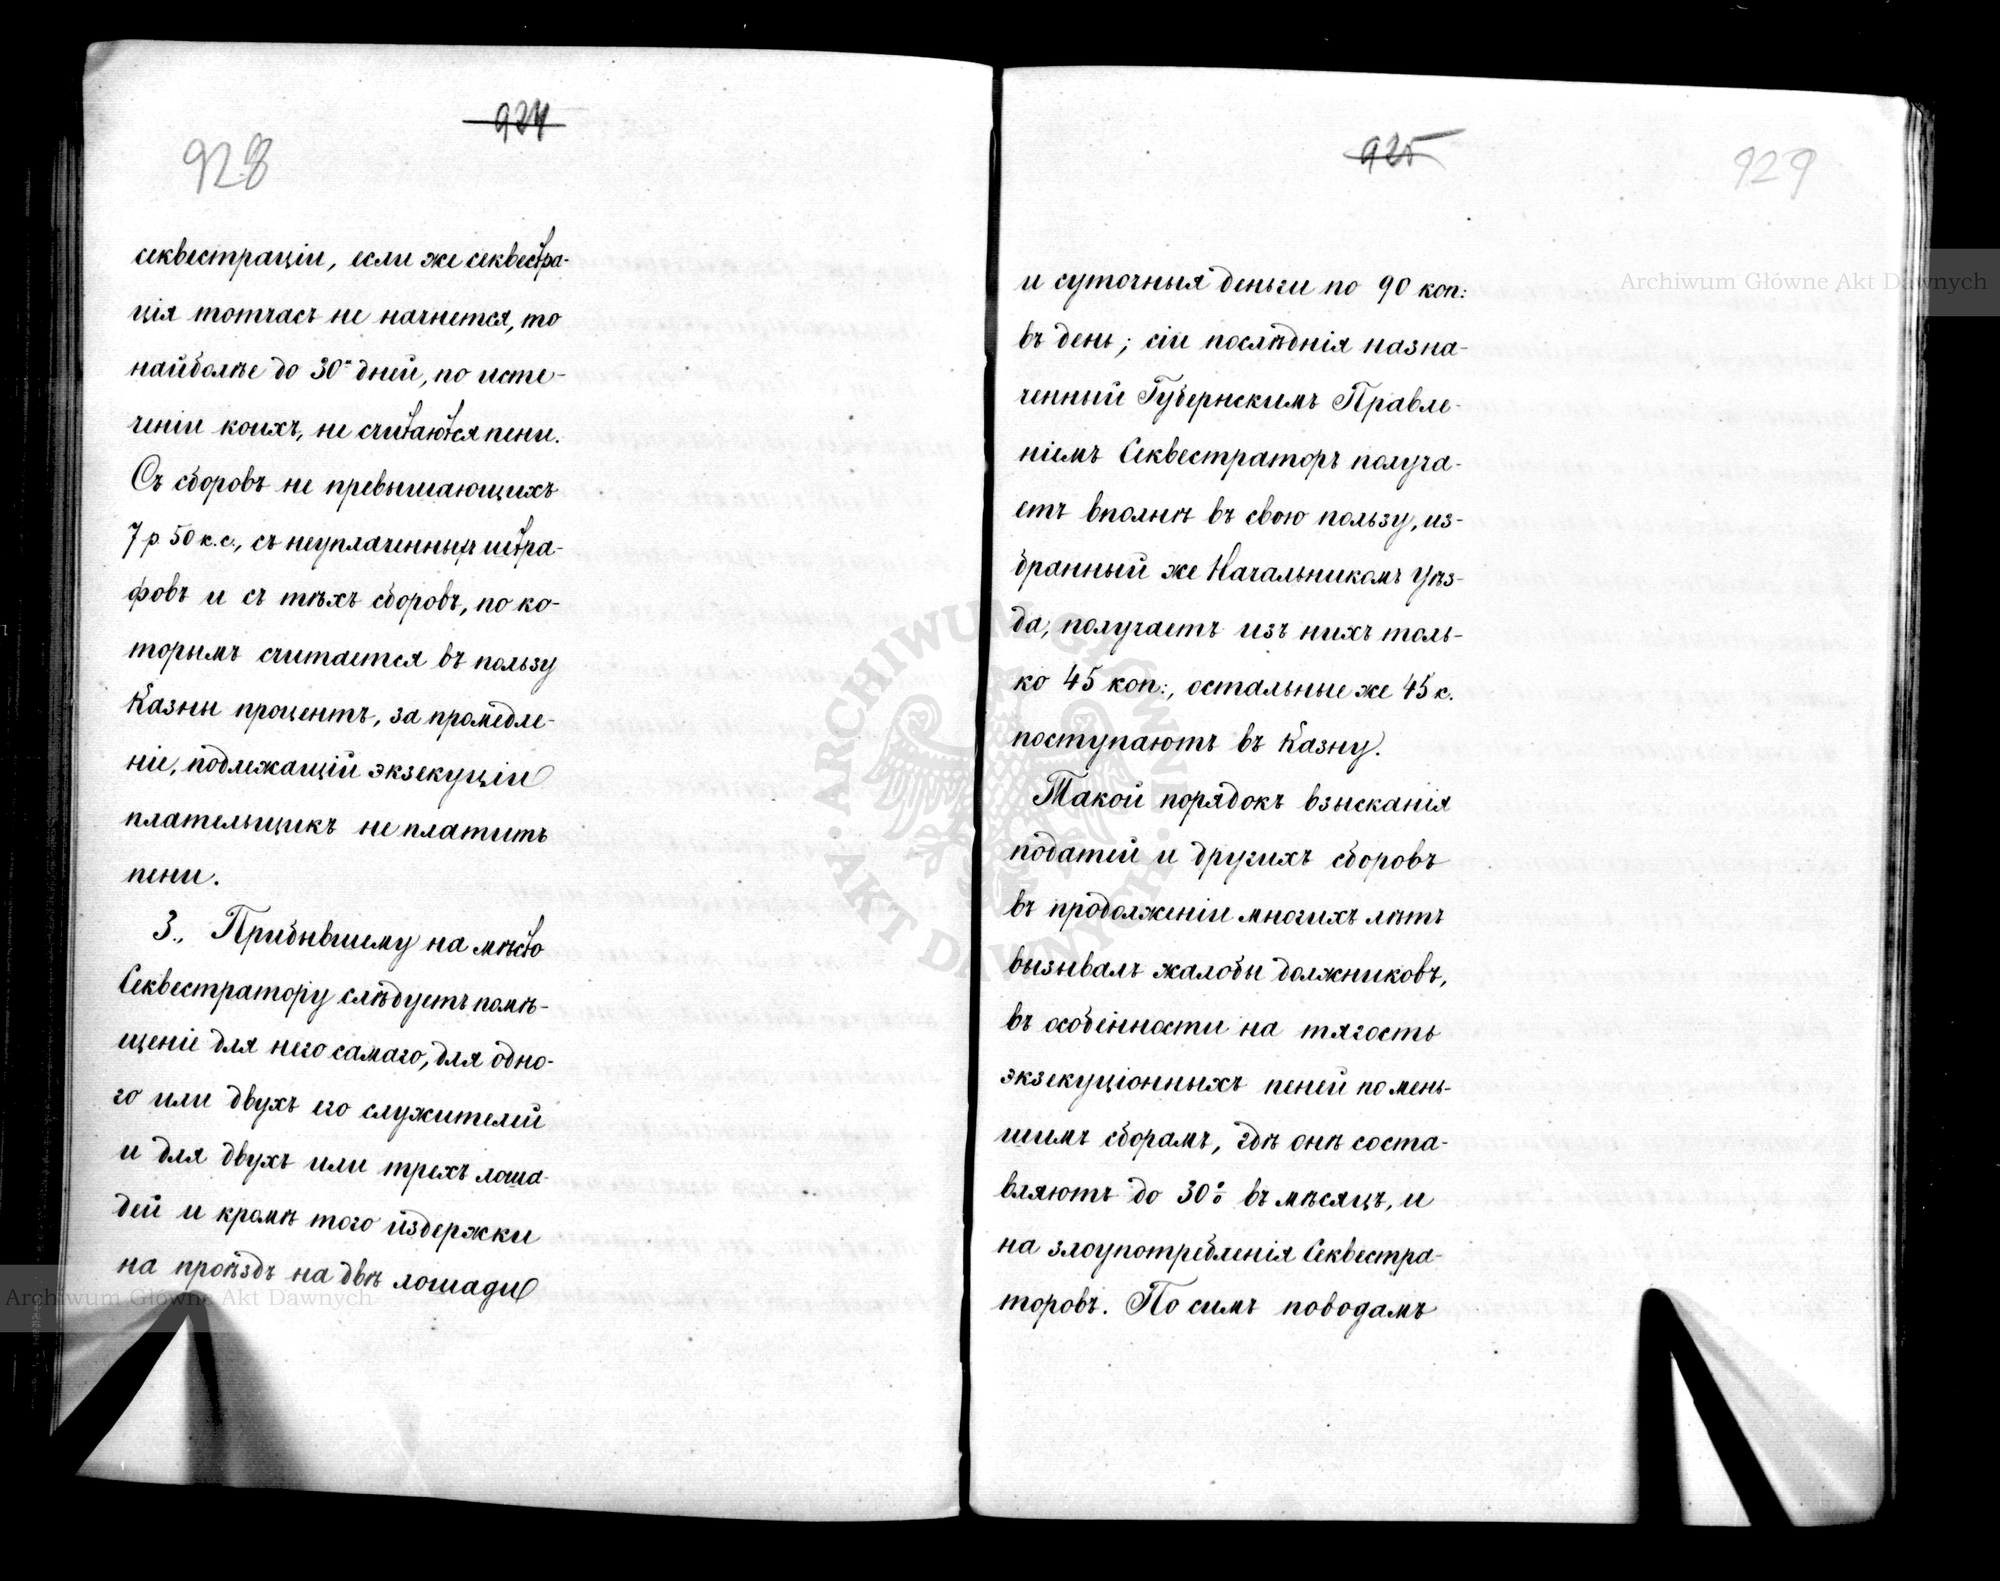 924
928
секвестраціи, если же секвестра-
ція тотчасъ не начнется, то
наиболѣе до 30и дней, по исте-
ченіи коихъ, не считаются пени.
Съ сборовъ не превышающихъ
7 р 50 к. с., съ неуплаченных штра-
фовъ и съ тѣхъ сборовъ, по ко-
торымъ считается въ пользу
Казны процентъ, за промедле-
ніе, подлежащій экзекуціи
плательщикъ не платитъ
пени.
3., Прибывшему на мѣсто
Секвестратору слѣдуетъ помѣ-
щеніе для него самаго, для одно-
го или двухъ его служителей
и для двухъ или трехъ лоша-
дей и кромѣ того издержки
на проѣздъ на двѣ лошади
925
929
и суточныя деньги по 90 коп:
въ день; сіи послѣднія назна-
ченный Губернскимъ Правле-
ніемъ Секвестраторъ получа-
етъ вполнѣ въ свою пользу, из-
бранный же Начальникомъ Уѣз-
да, получаетъ изъ нихъ толь-
ко 45 коп:, остальные же 45 к.
поступаютъ въ Казну.
Такой порядокъ взысканія
податей и другихъ сборовъ
въ продолженіи многихъ лѣтъ
вызывалъ жалобы должниковъ,
въ особенности на тягость
экзекуціонныхъ пеней по мень-
шимъ сборамъ, гдѣ онѣ соста-
вляютъ до 30% въ мѣсяцъ, и
на злоупотребленія Секвестра-
торовъ. По симъ поводамъ
Archiwum Główne Akt Dawnych
Archiwum Główne Akt Dawnych
· ARCHIWUM GŁÓWNE · AKT DAWNYCH